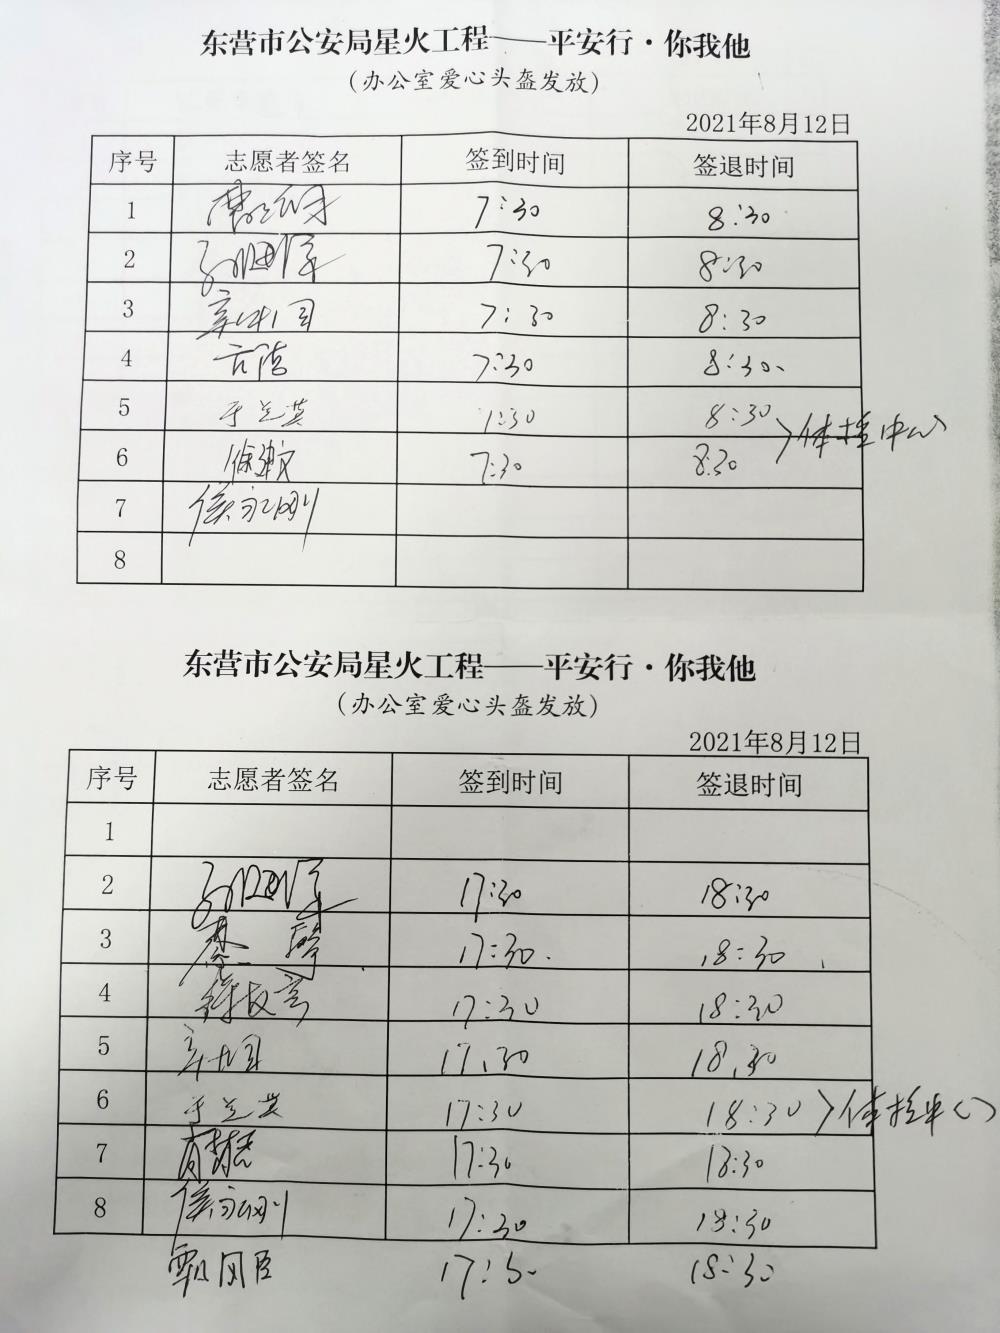 东营市公安局星火工程——平安行·你我他
(办公室爱心头盔发放)
2021年8月12日
序号 志愿者签名 签到时间 签退时间
1 7:30 8:30
2 7:30 8:30
3 7:30 8:30
4 7:30 8:30
5 于兰英 1:30 8:30
体检中心
6 7:30 8:30
7 侯永刚
8
东营市公安局星火工程——平安行·你我他
(办公室爱心头盔发放)
2021年8月12日
序号 志愿者签名 签到时间 签退时间
1
2 17:30 18:30
3 17:30 18:30
4 17:30 18:30
5 17:30 18:30
6 于兰英 17:30 18:30 体检中心
7 17:30 18:30
8 侯永刚 17:30 18:30
18:30